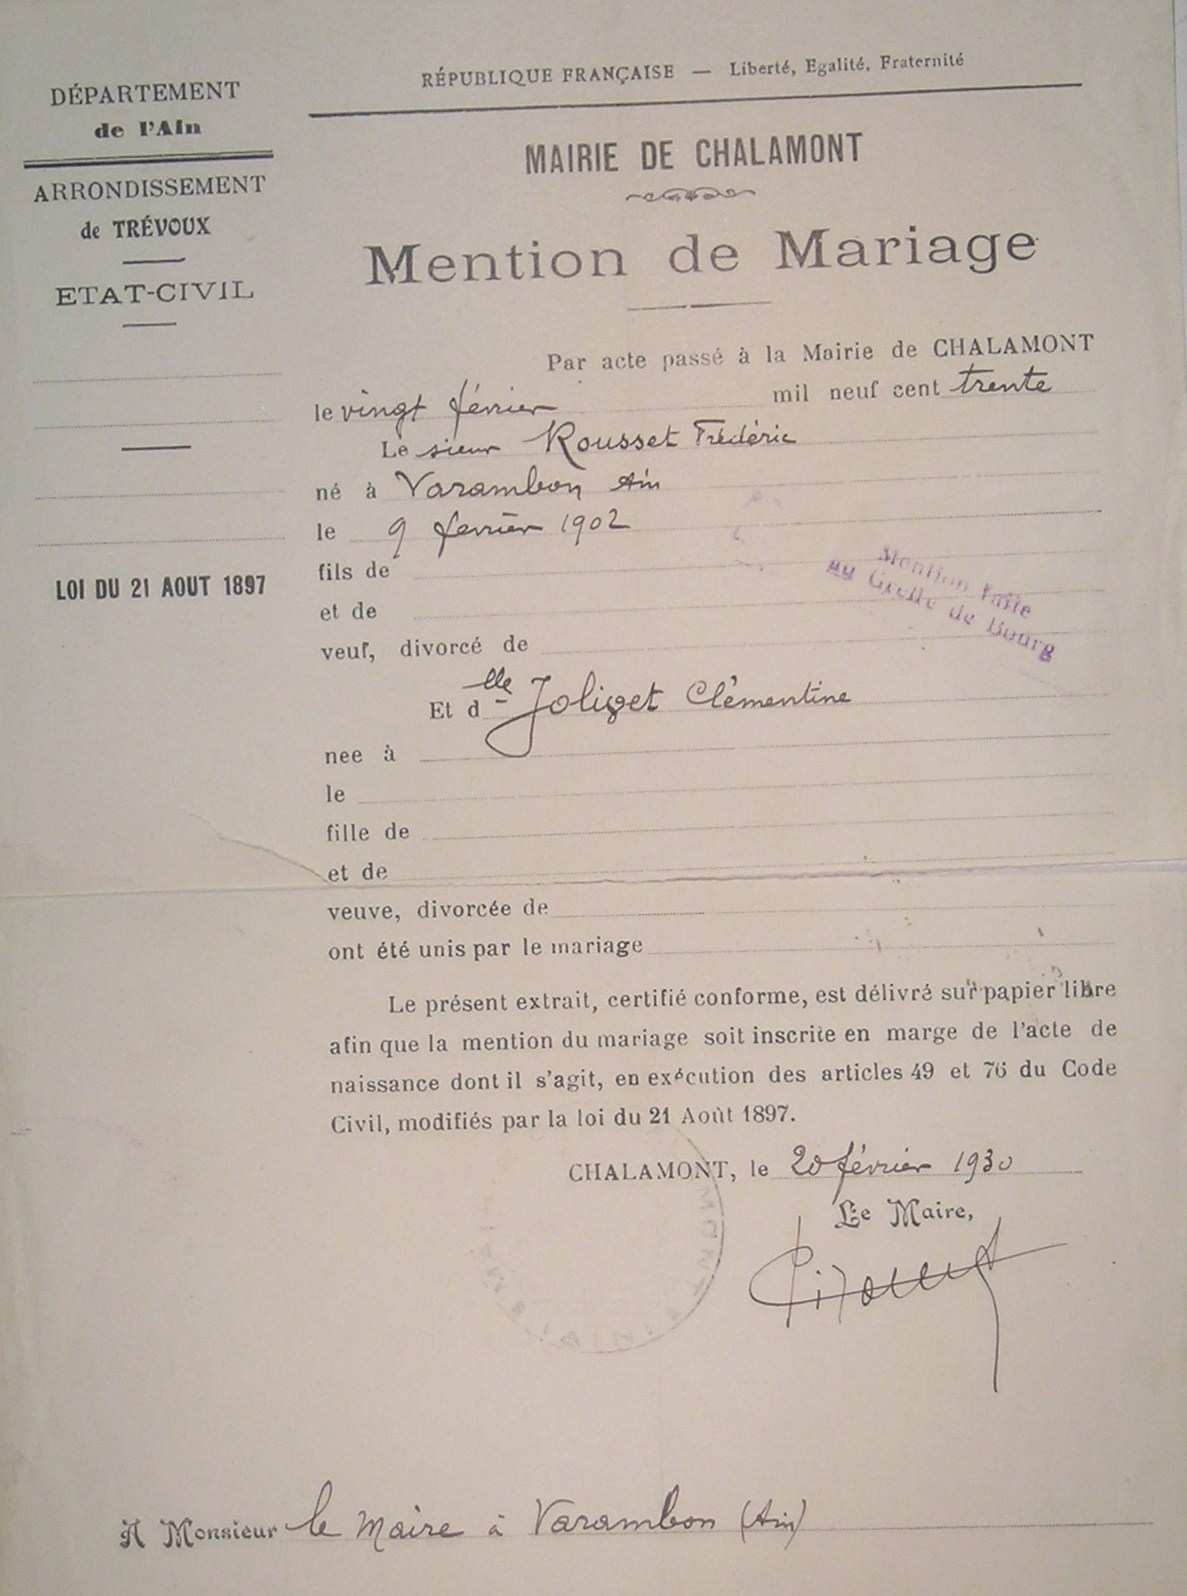 RÉPUBLIQUE FRANÇAISE — Liberté, Egalité, Fraternité
DÉPARTEMENT
de l'Ain
ARRONDISSEMENT
de TRÉVOUX
ETAT-CIVIL
LOI DU 21 AOUT 1897
MAIRIE DE CHALAMONT
Mention de Mariage
Par acte passé à la Mairie de CHALAMONT
le vingt février mil neuf cent trente
Le sieur Rousset Frédéric
né à Varambon Ain
le 9 février 1902
fils de
et de
veuf, divorcé de
Mention Faite
au Greffe de Bourg
Et d lle Jolivet Clémentine
nee à
le
fille de
et de
veuve, divorcée de
ont été unis par le mariage
Le présent extrait, certifié conforme, est délivré sur papier libre
afin que la mention du mariage soit inscrite en marge de l'acte de
naissance dont il s'agit, en exécution des articles 49 et 76 du Code
Civil, modifiés par la loi du 21 Août 1897.
CHALAMONT, le 20 février 1930
Le Maire,
A Monsieur le Maire à Varambon (Ain)